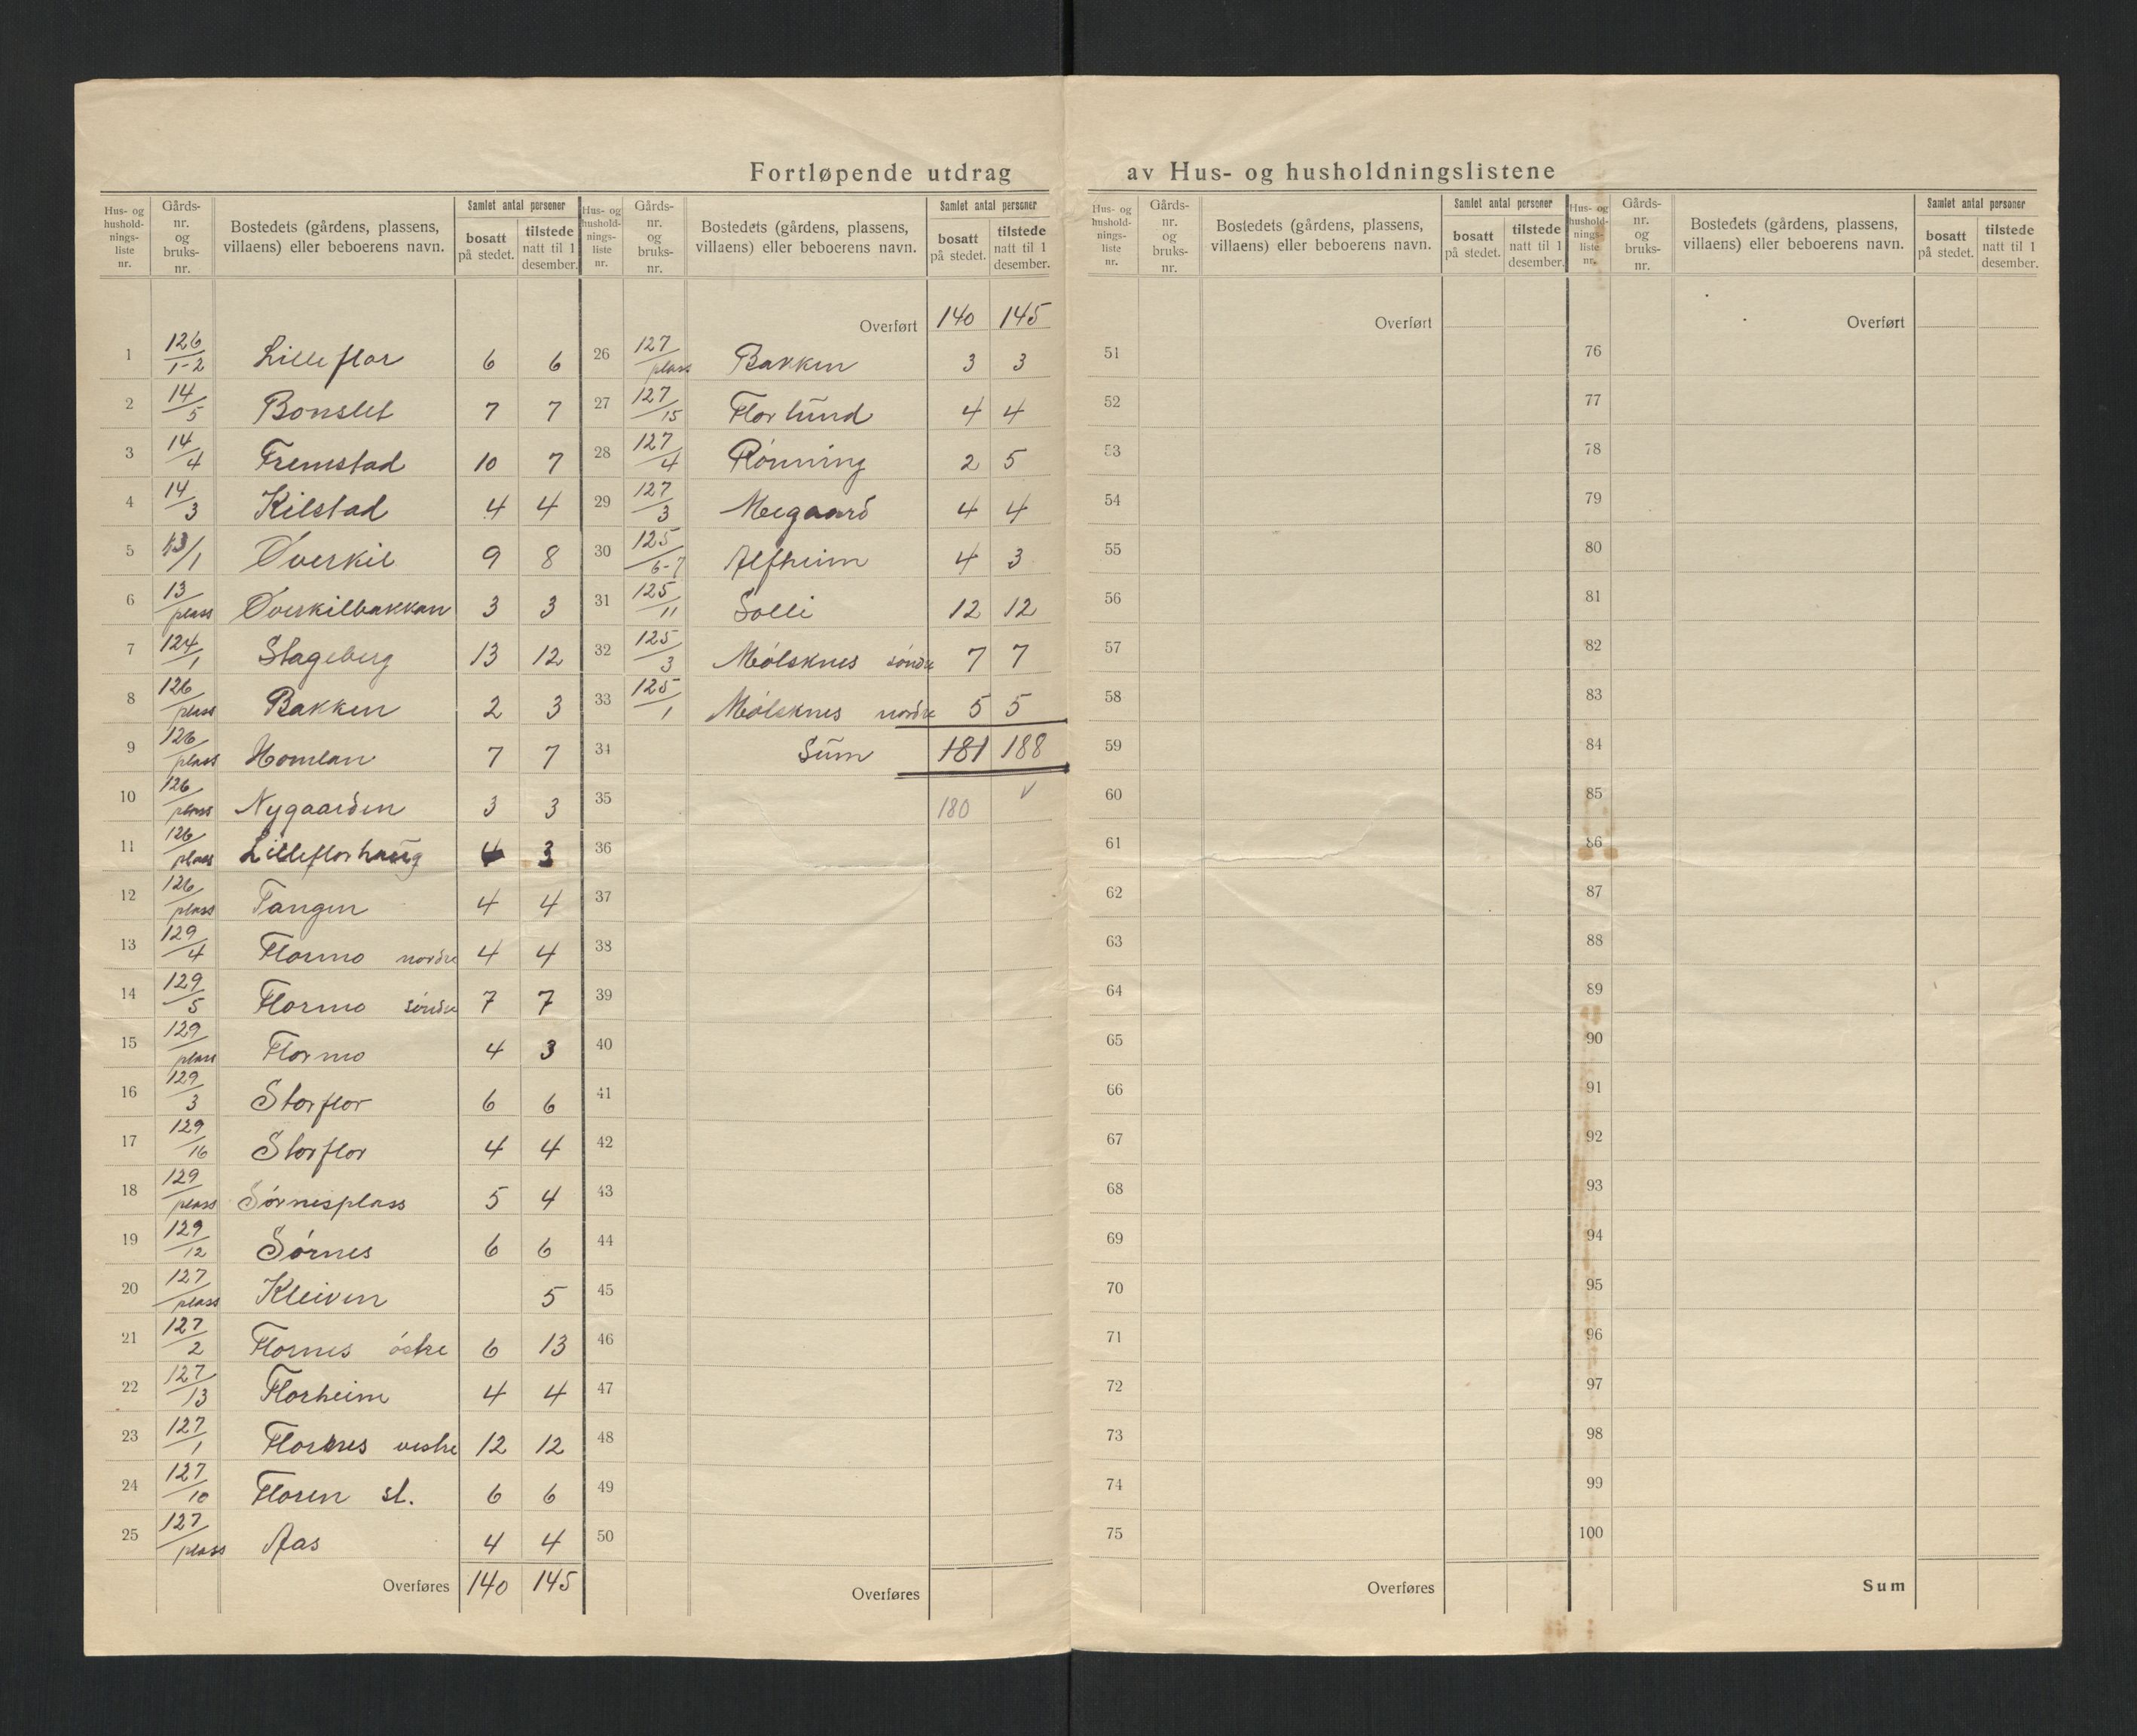 Fortløpende utdrag av Hus- og husholdningslistene
Hus- og hushold-nings-liste nr. | Gårds-nr. og bruks-nr. | Bostedets (gårdens, plassens, villaens) eller beboerens navn. | Samlet antal personer | bosatt på stedet. | tilstede natt til 1 desember.
1 126/1-2 Lilleflor 6 6
2 14/5 Bonslet 7 7
3 14/4 Fremstad 10 7
4 14/3 Kilstad 4 4
5 13/1 Överkil 9 8
6 13/plass Överkilbakkan 3 3
7 124/1 Stageberg 13 12
8 126/plass Bakken 2 3
9 126/plass Homlan 7 7
10 126/plass Nygaarden 3 3
11 126/plass Lilleflorhaug 4 3
12 126/plass Tangen 4 4
13 129/4 Flormo nordre 4 4
14 129/5 Flormo söndre 7 7
15 129/plass Flormo 4 3
16 129/3 Storflor 6 6
17 129/16 Storflor 4 4
18 129/plass Sörnesplass 5 4
19 129/12 Sörnes 6 6
20 127/plass Kleiven 5
21 127/2 Flornes östre 6 13
22 127/13 Florheim 4 4
23 127/1 Flornes vestre 12 12
24 127/10 Floren st. 6 6
25 127/plass Aas 4 4
Overføres 140 145
Hus- og hushold-nings-liste nr. | Gårds-nr. og bruks-nr. | Bostedets (gårdens, plassens, villaens) eller beboerens navn. | Samlet antal personer | bosatt på stedet. | tilstede natt til 1 desember.
Overført 140 145
26 127/plass Bakken 3 3
27 127/15 Florlund 4 4
28 127/4 Rönning 2 5
29 127/3 Moegaard 4 4
30 125/6-7 Alfheim 4 3
31 125/11 Solli 12 12
32 125/3 Mölsknes söndre 7 7
33 125/1 Mölsknes nordre 5 5
34 Sum 181 188
35 180 V
36
37
38
39
40
41
42
43
44
45
46
47
48
49
50
Overføres
Hus- og hushold-nings-liste nr. | Gårds-nr. og bruks-nr. | Bostedets (gårdens, plassens, villaens) eller beboerens navn. | Samlet antal personer | bosatt på stedet. | tilstede natt til 1 desember.
Overført
51
52
53
54
55
56
57
58
59
60
61
62
63
64
65
66
67
68
69
70
71
72
73
74
75
Overføres
Hus- og hushold-nings-liste nr. | Gårds-nr. og bruks-nr. | Bostedets (gårdens, plassens, villaens) eller beboerens navn. | Samlet antal personer | bosatt på stedet. | tilstede natt til 1 desember.
Overført
76
77
78
79
80
81
82
83
84
85
86
87
88
89
90
91
92
93
94
95
96
97
98
99
100
Sum